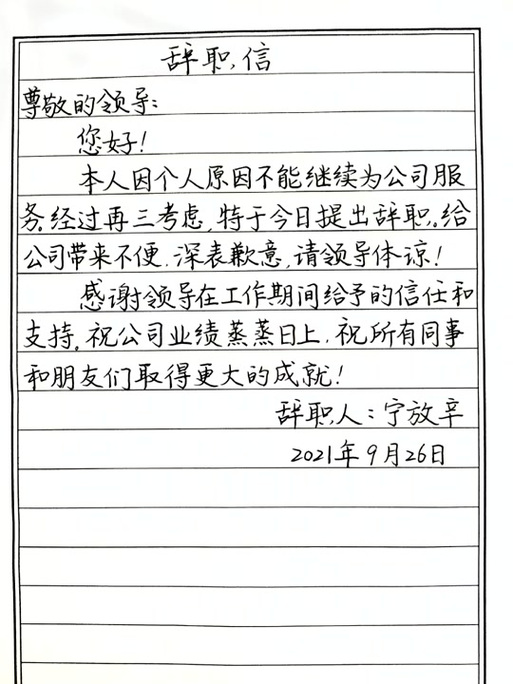 辞职信
尊敬的领导:
您好!
本人因个人原因不能继续为公司服
务。经过再三考虑,特于今日提出辞职。给
公司带来不便,深表歉意,请领导体谅!
感谢领导在工作期间给予的信任和
支持。祝公司业绩蒸蒸日上,祝所有同事
和朋友们取得更大的成就!
辞职人:宁放辛
2021年9月26日